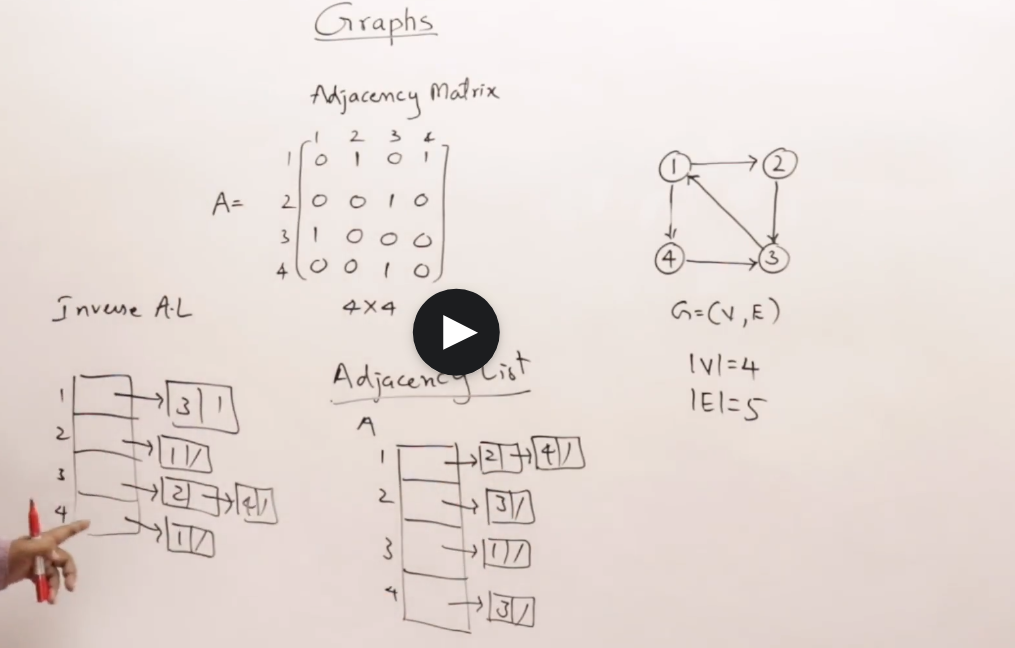 Graphs
Adjacency Matrix
1 2 3 4
1 0 1 0 1
A= 2 0 0 1 0
3 1 0 0 0
4 0 0 1 0
4×4
1 2
4 3
G=(V,E)
|V|=4
|E|=5
Inverse A.L
1 → 3 |
2 → 1 /
3 → 2 → 4 /
4 → 1 /
Adjacency List
A
1 → 2 → 4 /
2 → 3 /
3 → 1 /
4 → 3 /